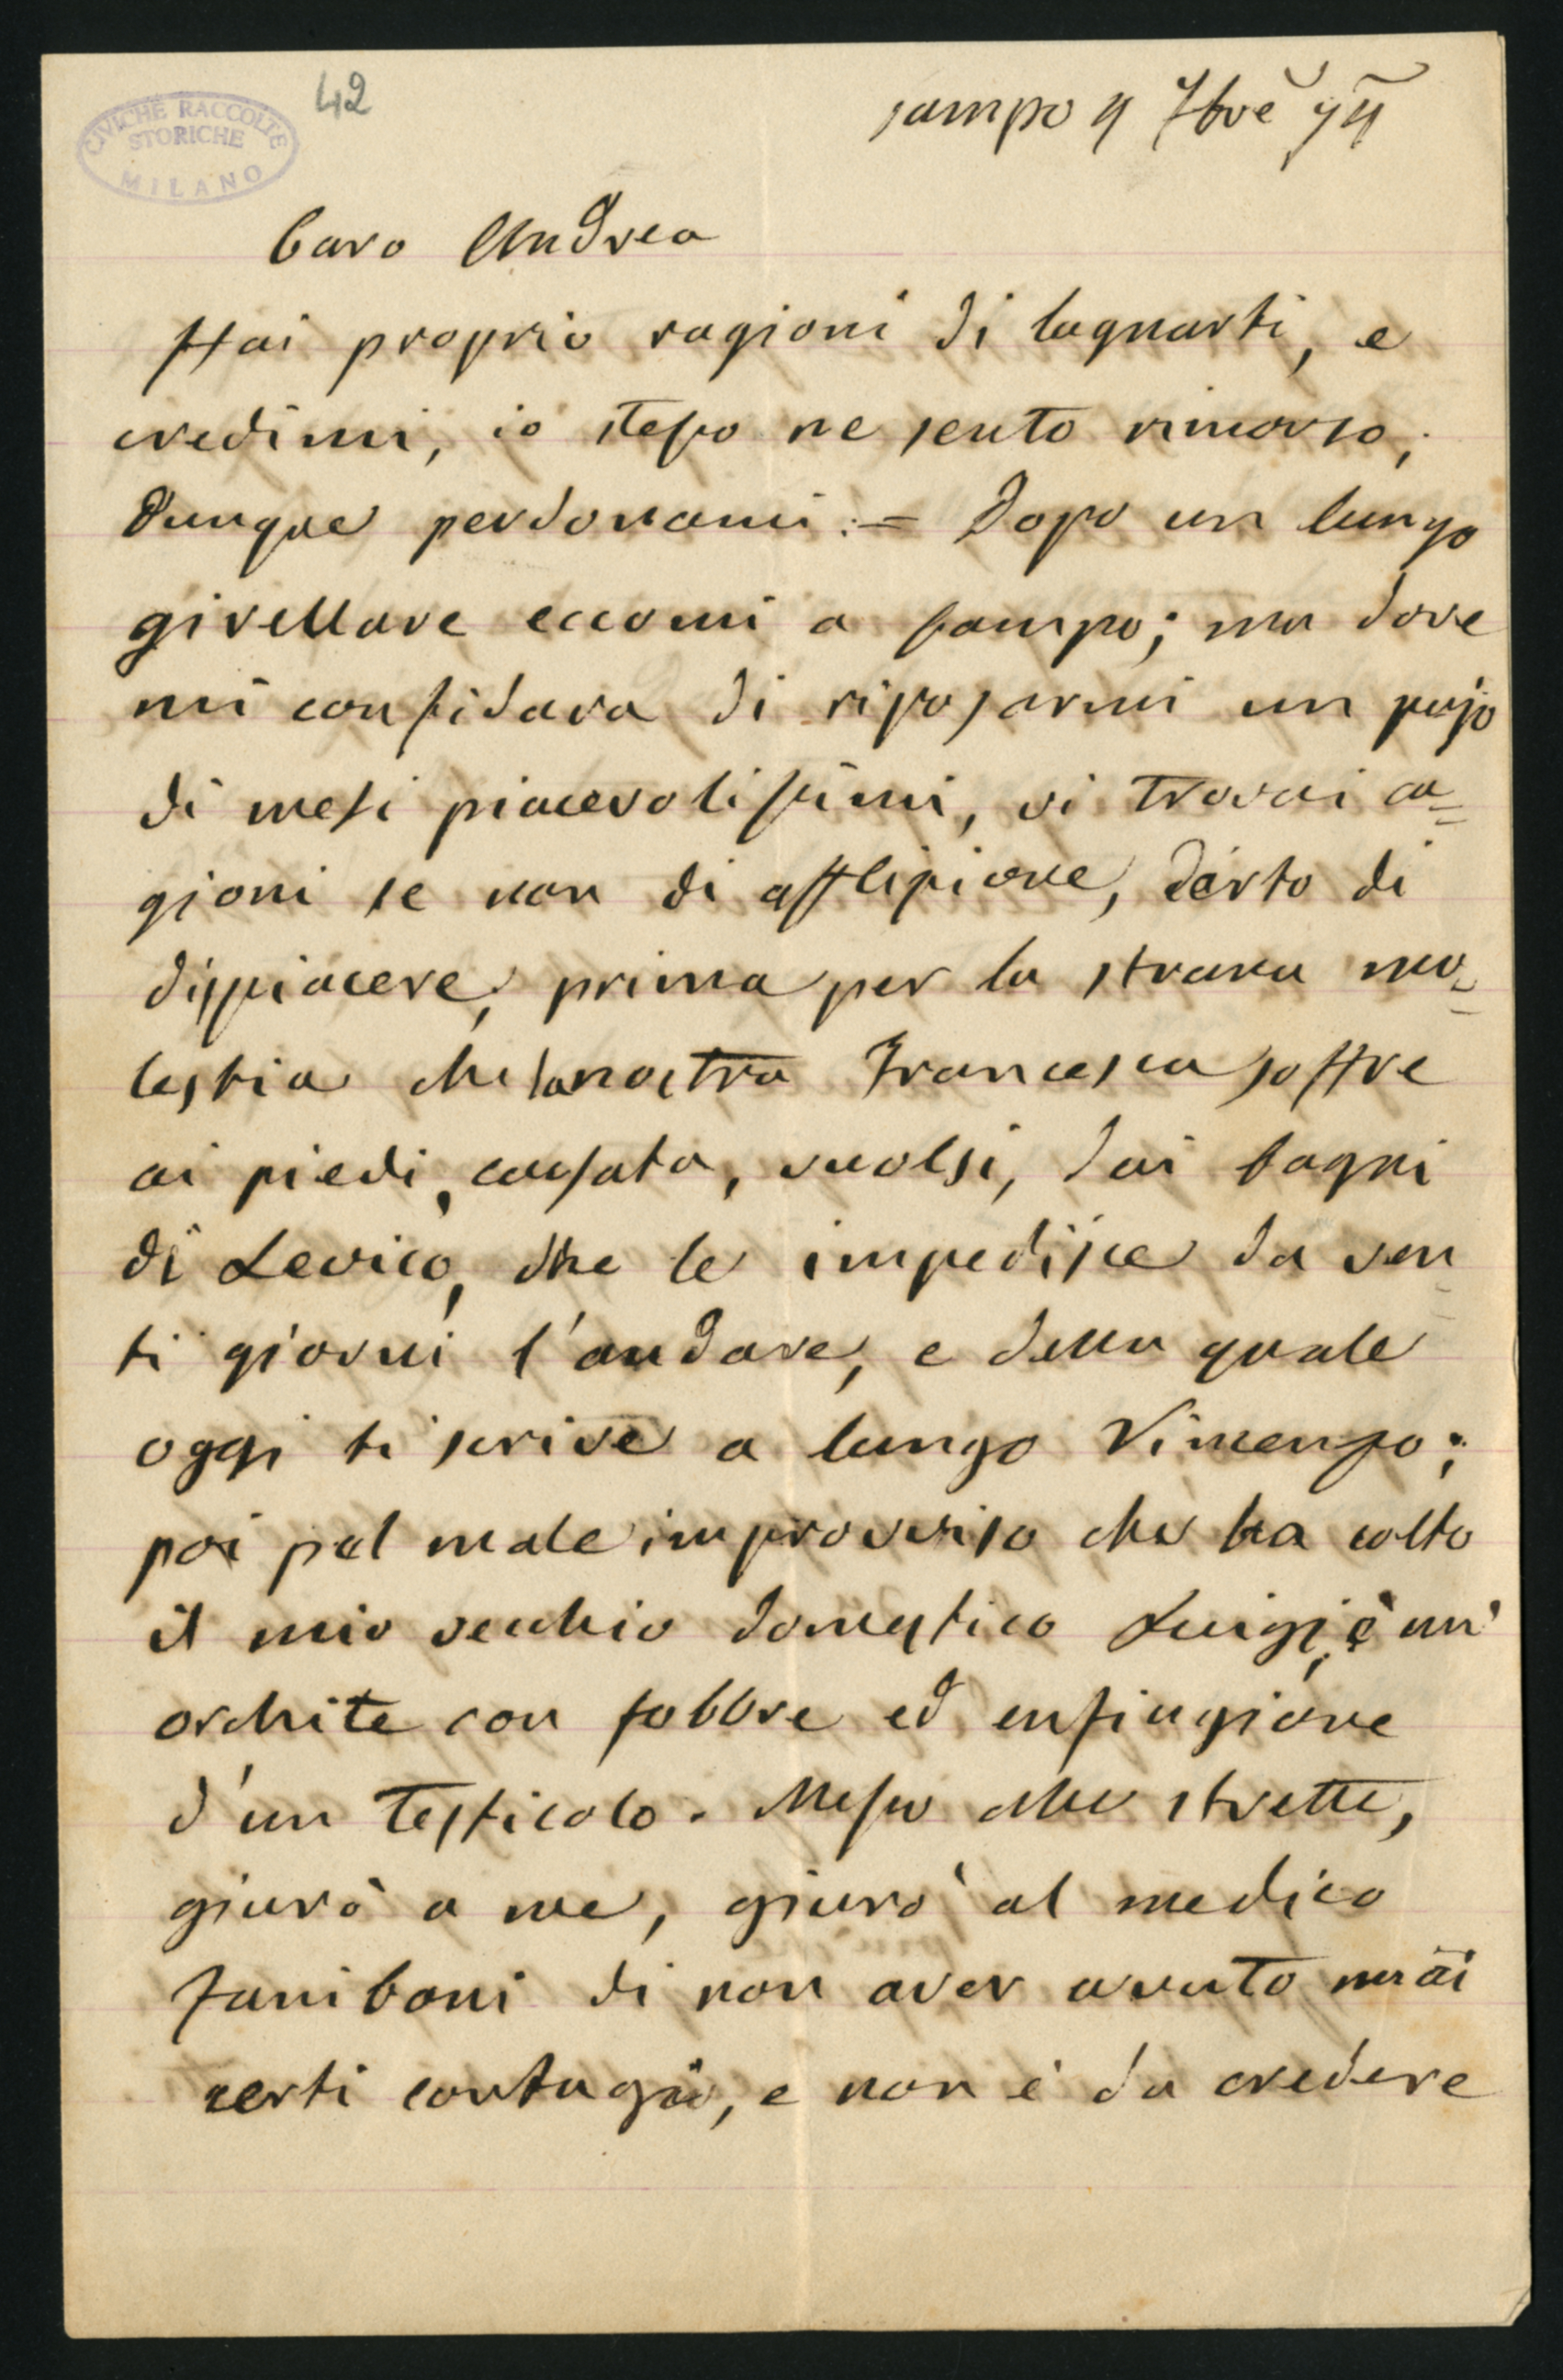 CIVICHE RACCOLTE
STORICHE
MILANO
42
Campo 9 7bre
Caro Andrea
Hai proprio ragioni di lagnarti, e
credimi, io stesso ne sento rimorso;
dunque perdonami. = Dopo un lungo
girellare eccomi a Campo; ma dove
mi confidava di riposarmi un pajo
di mesi piacevolissimi, vi trovai ca=
gioni se non di afflizione, certo di
dispiacere, prima per la strana mo=
lestia che la nostra Francesca soffre
ai piedi, causata, vuolsi, dai bagni
di Levico, che le impedisce da ven
ti giorni l'andare, e della quale
oggi ti scrive a lungo Vincenzo;
poi pel male improvviso che ha colto
il mio vecchio domestico Luigi, è un'
orchite con febbre ed enfiagione
d'un testicolo. Messo alle strette,
giurò a me, giurò al medico
Zaniboni di non aver avuto mai
certi contagii, e non è da credere